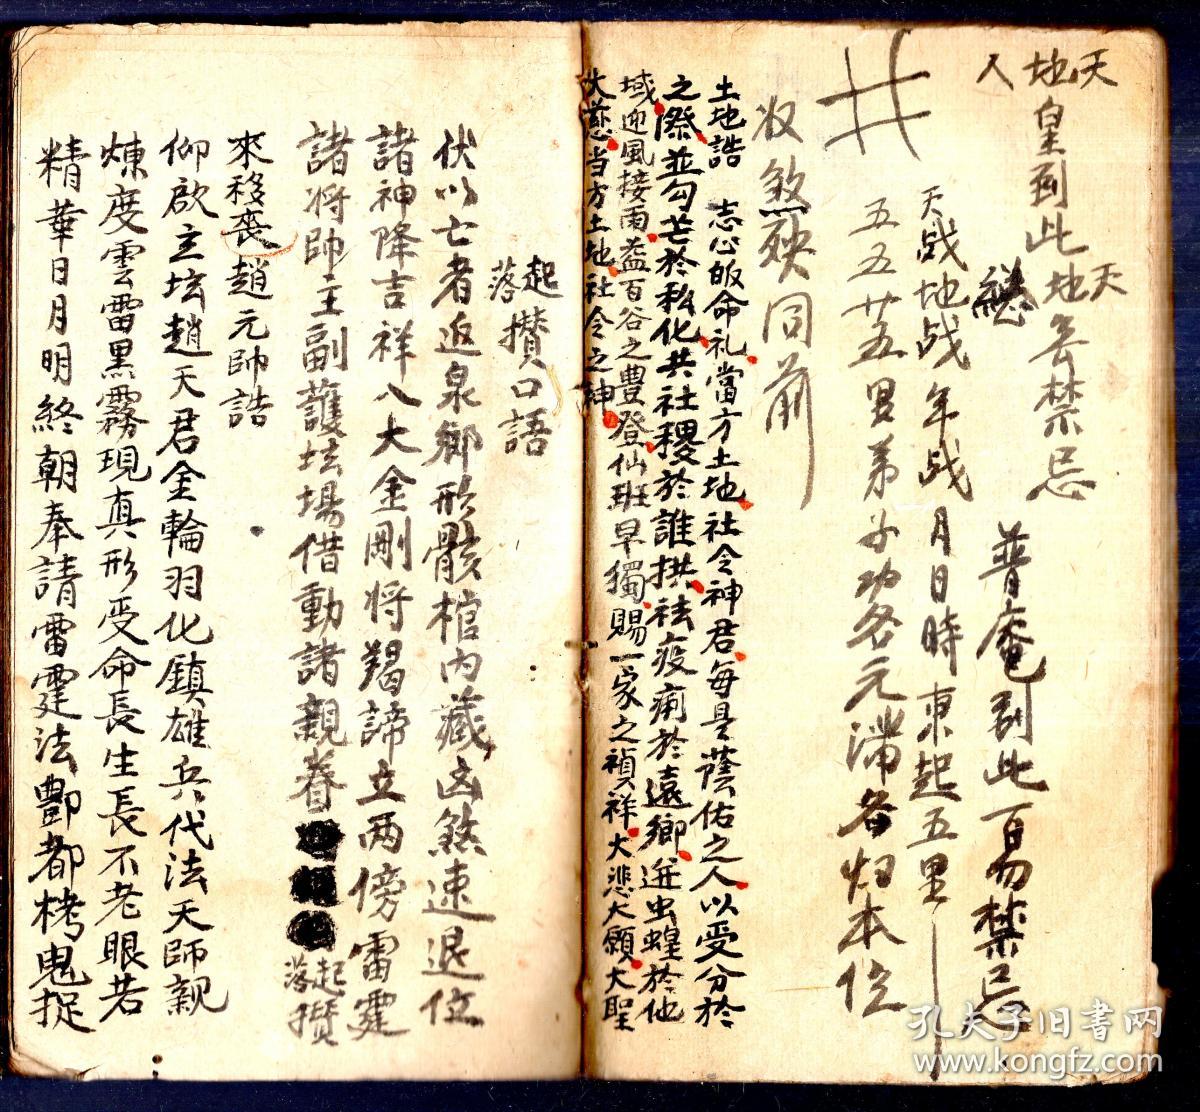 天地人皇到此天地無禁忌
普庵到此百易禁忌
天战地战年战月日時東起五里
五五廿五男弟子功各元滯各归本位
收煞殃同前
土地誥 志心皈命礼當方土地社令神君每是蔭佑之人以受分於
之際並勾芒於私化共社稷於誰拱祛疫痢於遠鄉迸虫蝗於他
域迎風接雨益百谷之豊登仙班早獨賜一家之禎祥大悲大願大聖
大慈当方土地社令之神
起落攅口語
伏以亡者返泉鄉形骸棺内藏凶煞速退位
諸神降吉祥八大金剛将羯諦立两傍雷霆
諸将帥主副護坛場借動諸親眷
起落攅
來移喪趙元帥誥
仰啟立坛趙天君金輪羽化鎮雄兵代法天師親
煉度雲雷黑霧現真形受命長生長不老眼若
精華日月明終朝奉請雷霆法酆都栲鬼捉
孔夫子旧书网
www.kongfz.com